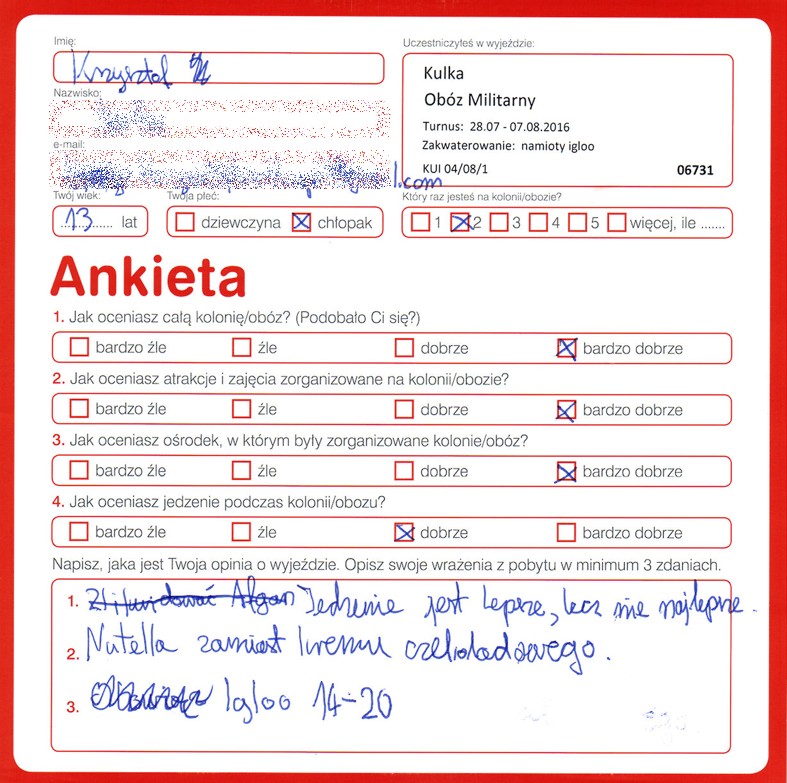 Imię:
Krzysztof
Uczestniczyłeś w wyjeździe:
Kulka
Obóz Militarny
Turnus: 28.07 - 07.08.2016
Zakwaterowanie: namioty igloo
KUI 04/08/1 06731
Nazwisko:
e-mail:
l.com
Twój wiek:
13 lat
Twoja płeć:
dziewczyna chłopak
Który raz jesteś na kolonii/obozie?
1 2 3 4 5 więcej, ile .......
Ankieta
1. Jak oceniasz całą kolonię/obóz? (Podobało Ci się?)
bardzo źle źle dobrze bardzo dobrze
2. Jak oceniasz atrakcje i zajęcia zorganizowane na kolonii/obozie?
bardzo źle źle dobrze bardzo dobrze
3. Jak oceniasz ośrodek, w którym były zorganizowane kolonie/obóz?
bardzo źle źle dobrze bardzo dobrze
4. Jak oceniasz jedzenie podczas kolonii/obozu?
bardzo źle źle dobrze bardzo dobrze
Napisz, jaka jest Twoja opinia o wyjeździe. Opisz swoje wrażenia z pobytu w minimum 3 zdaniach.
1. Zlikwidować Afgan Jedzenie jest lepsze, lecz nie najlepsze.
2. Nutella zamiast kremu czekoladowego.
3. Igloo 14-20